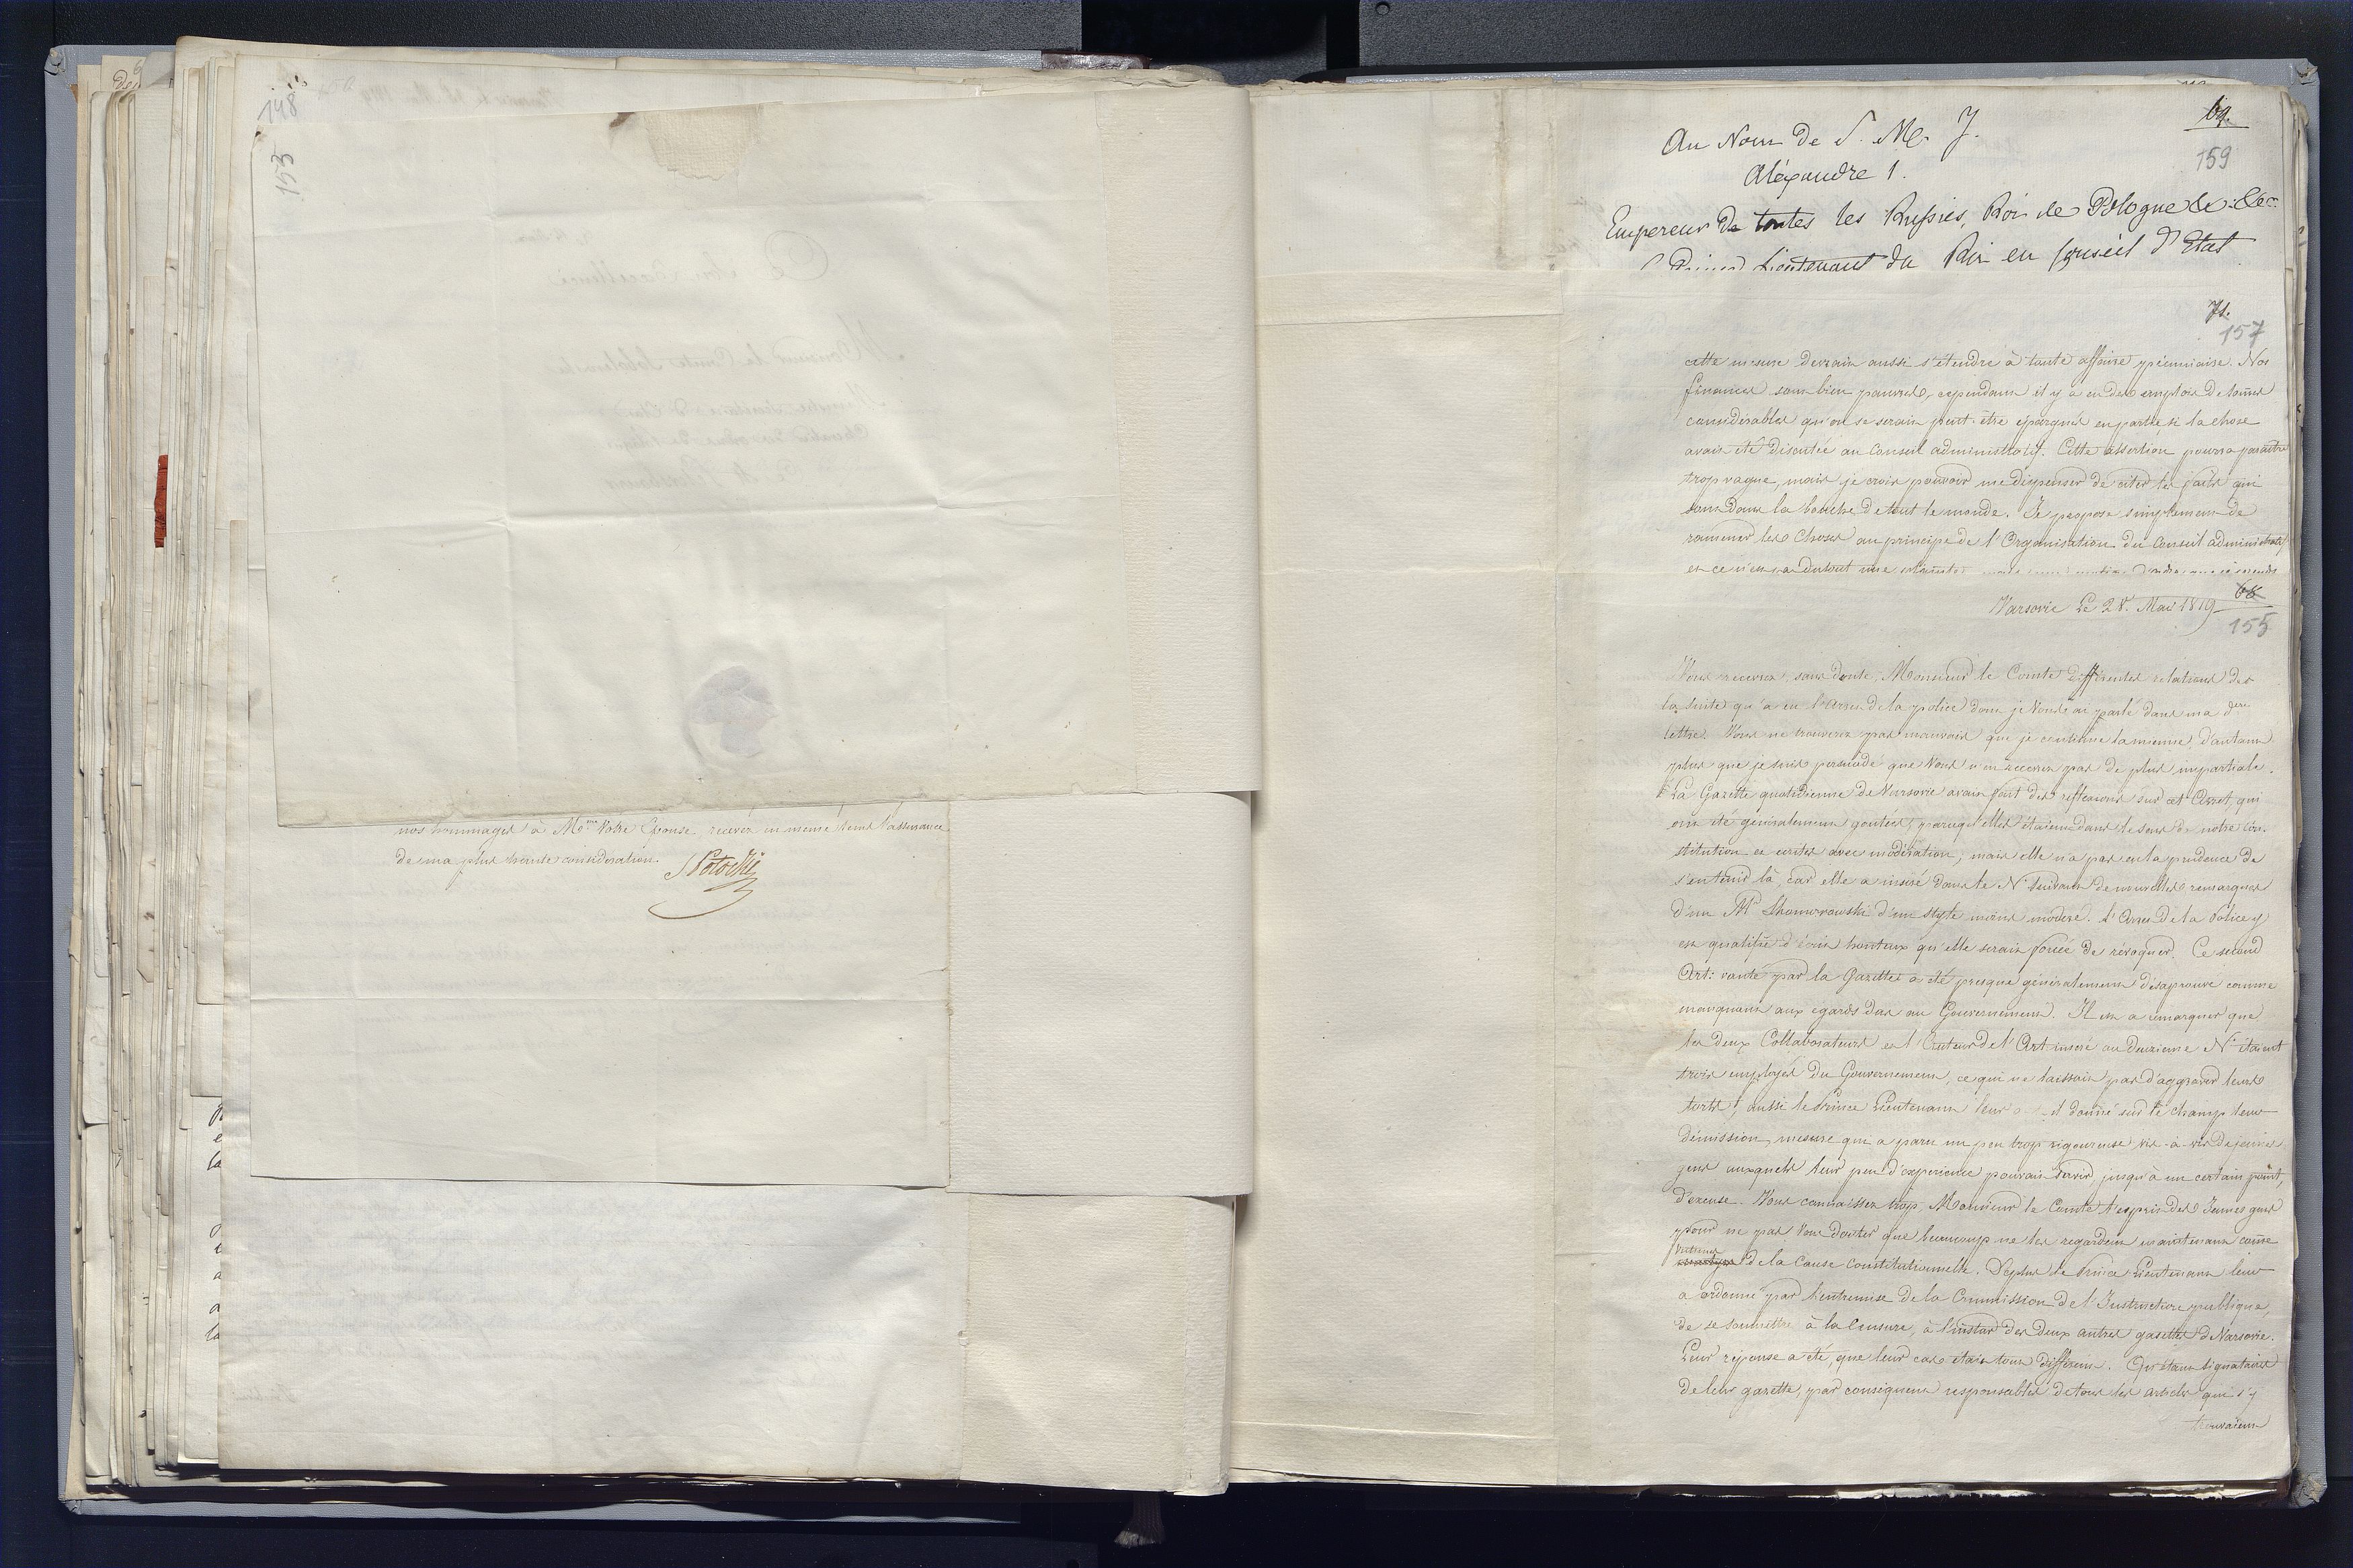 148
153
nos hommages à Mme Votre Epouse, recevez en meme tems l'assurance
de ma plus haute consideration. SPotocki
69.
159
Au Nom de S. M. J.
Aléxandre 1.
Empereur de toutes les Russies, Roi de Pologne &c. &c.
Prince Lieutenant du Roi en Conseil d'Etat
71.
157
cette mesure devrait aussi s'etendre à toute affaire pécuniaire. Nos
finances sont bien pauvres, cependant il y a eu des emplois de somes
considerables qu'on se serait peut-etre épargnés en partie, si la chose
avait été discutée au Conseil administratif. Cette assertion pourra paraitre
trop vague, mais je crois pouvoir me dispenser de citer les faits qui
sont dans la bouche de tout le monde. Je propose simplement de
ramener les choses au principe de l'Organisation du Conseil administratif
et ce n'est pas du tout une
68
Varsovie Le 28. Mai 1819
155
Vous recevrez, sans doute, Monsieur le Comte differentes relations de
la suite qu'a eu l'Arret de la police dont je Vous ai parlé dans ma dere
lettre. Vous ne trouverez pas mauvais que je continue la mienne, d'autant
plus que je suis persuadé que Vous n'en recevrez pas de plus impartiale.
La Gazette quotidienne de Varsovie avait fait des reflexions sur cet Arret, qui
ont été généralement goutées, parcequ'elles étaient dans le sens de notre Con-
stitution et ecrites avec modération; mais elle n'a pas eu la prudence de
s'en tenir là, car elle a inséré dans le No suivant de nouvelles remarques
d'un Mr Skomorowski d'un style moins modéré. L'Arret de la Police y
est qualifié d'écrit honteux qu'elle serait forcée de révoquer. Ce second
Art: vanté par la Gazette a été presque généralement désaprouvé comme
manquant aux égards dus au Gouvernement. Il est a remarquer que
les deux Collaborateurs et l'Auteur de l'Art. inseré au deuxieme No étaient
trois employés du Gouvernement, ce qui ne laissait pas d'aggraver leurs
torts; aussi le Prince Lieutenant leur a-t-il donné sur le champ leur
démission, mesure qui a paru un peu trop rigoureuse vis-à-vis de jeunes
gens auxquels leur peu d'experience pouvait servir jusqu'à un certain point,
d'excuse. Vous connaissez trop, Monsieur le Comte l'esprit des Jeunes gens
pour ne pas Vous douter que beaucoup ne les regardent maintenant come
victimes
de la Cause Constitutionnelle. De plus le Prince Lieutenant leur
a ordonné par l'entremise de la Commission de l'Instruction publique,
de se soumettre à la Censure, à l'instar des deux autres gazettes de Varsovie.
Leur réponse a été, que leur cas était tout different. Qu'étant signataires
de leur gazette, par consequent responsables de tous les articles qui s'y
trouvaient